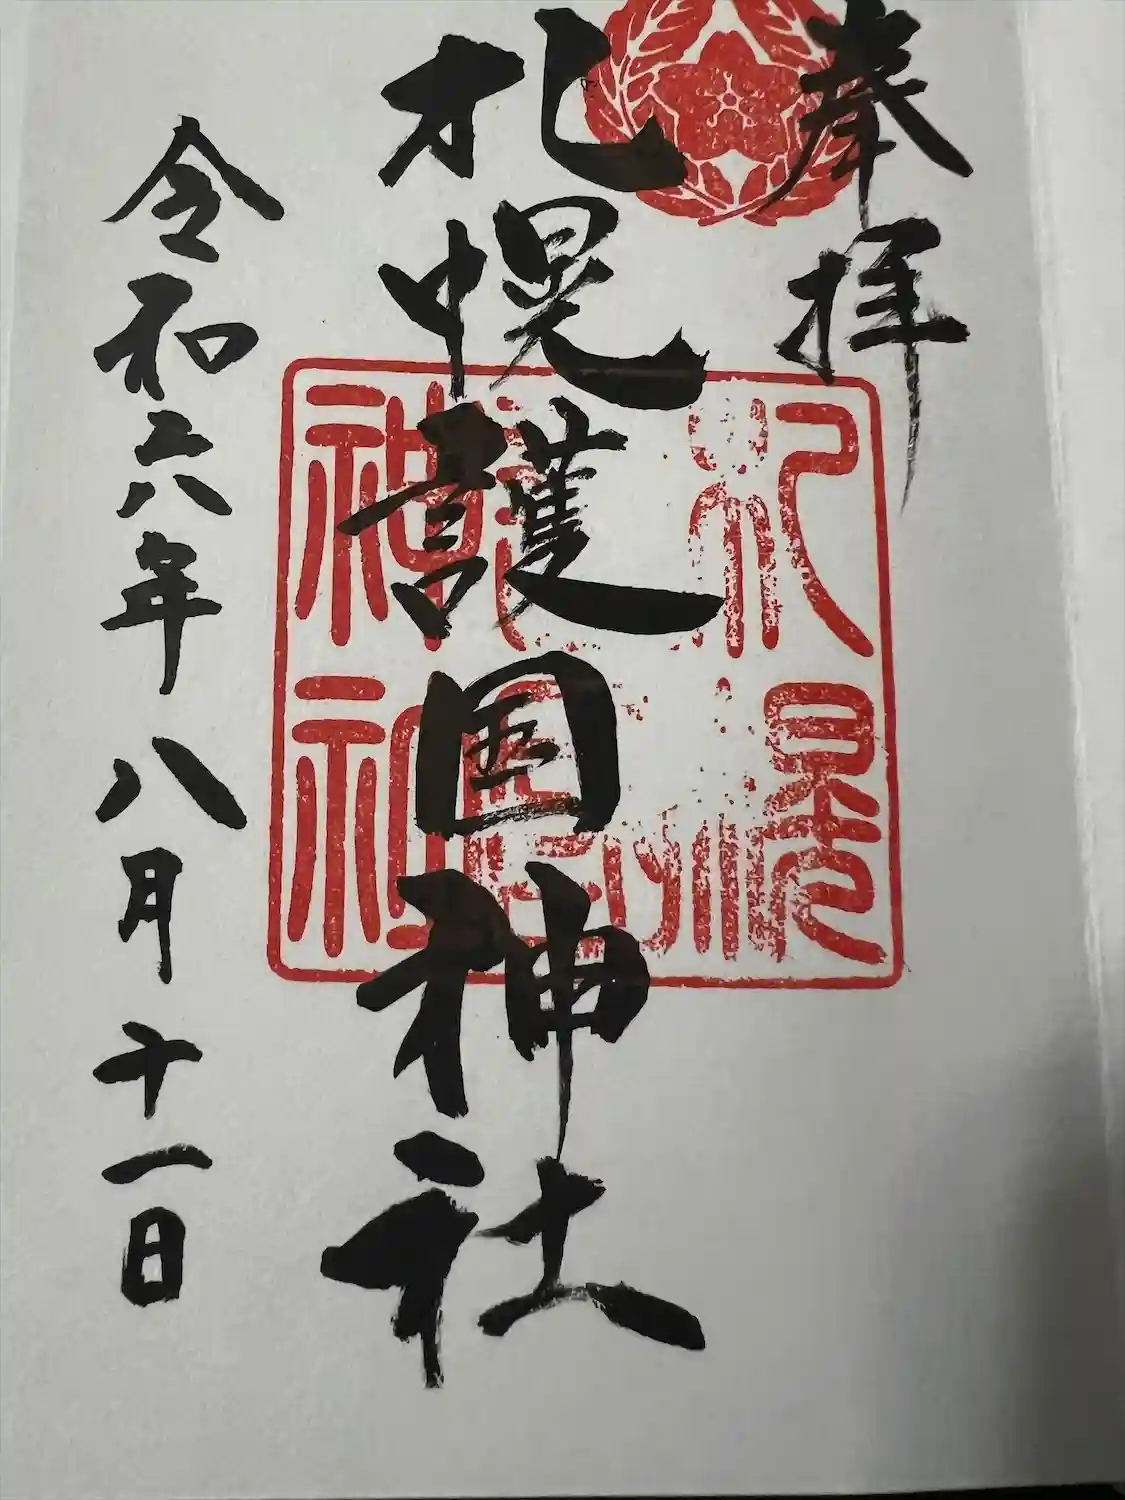 奉拝
札幌護国神社
札幌護國神社
令和六年八月十一日